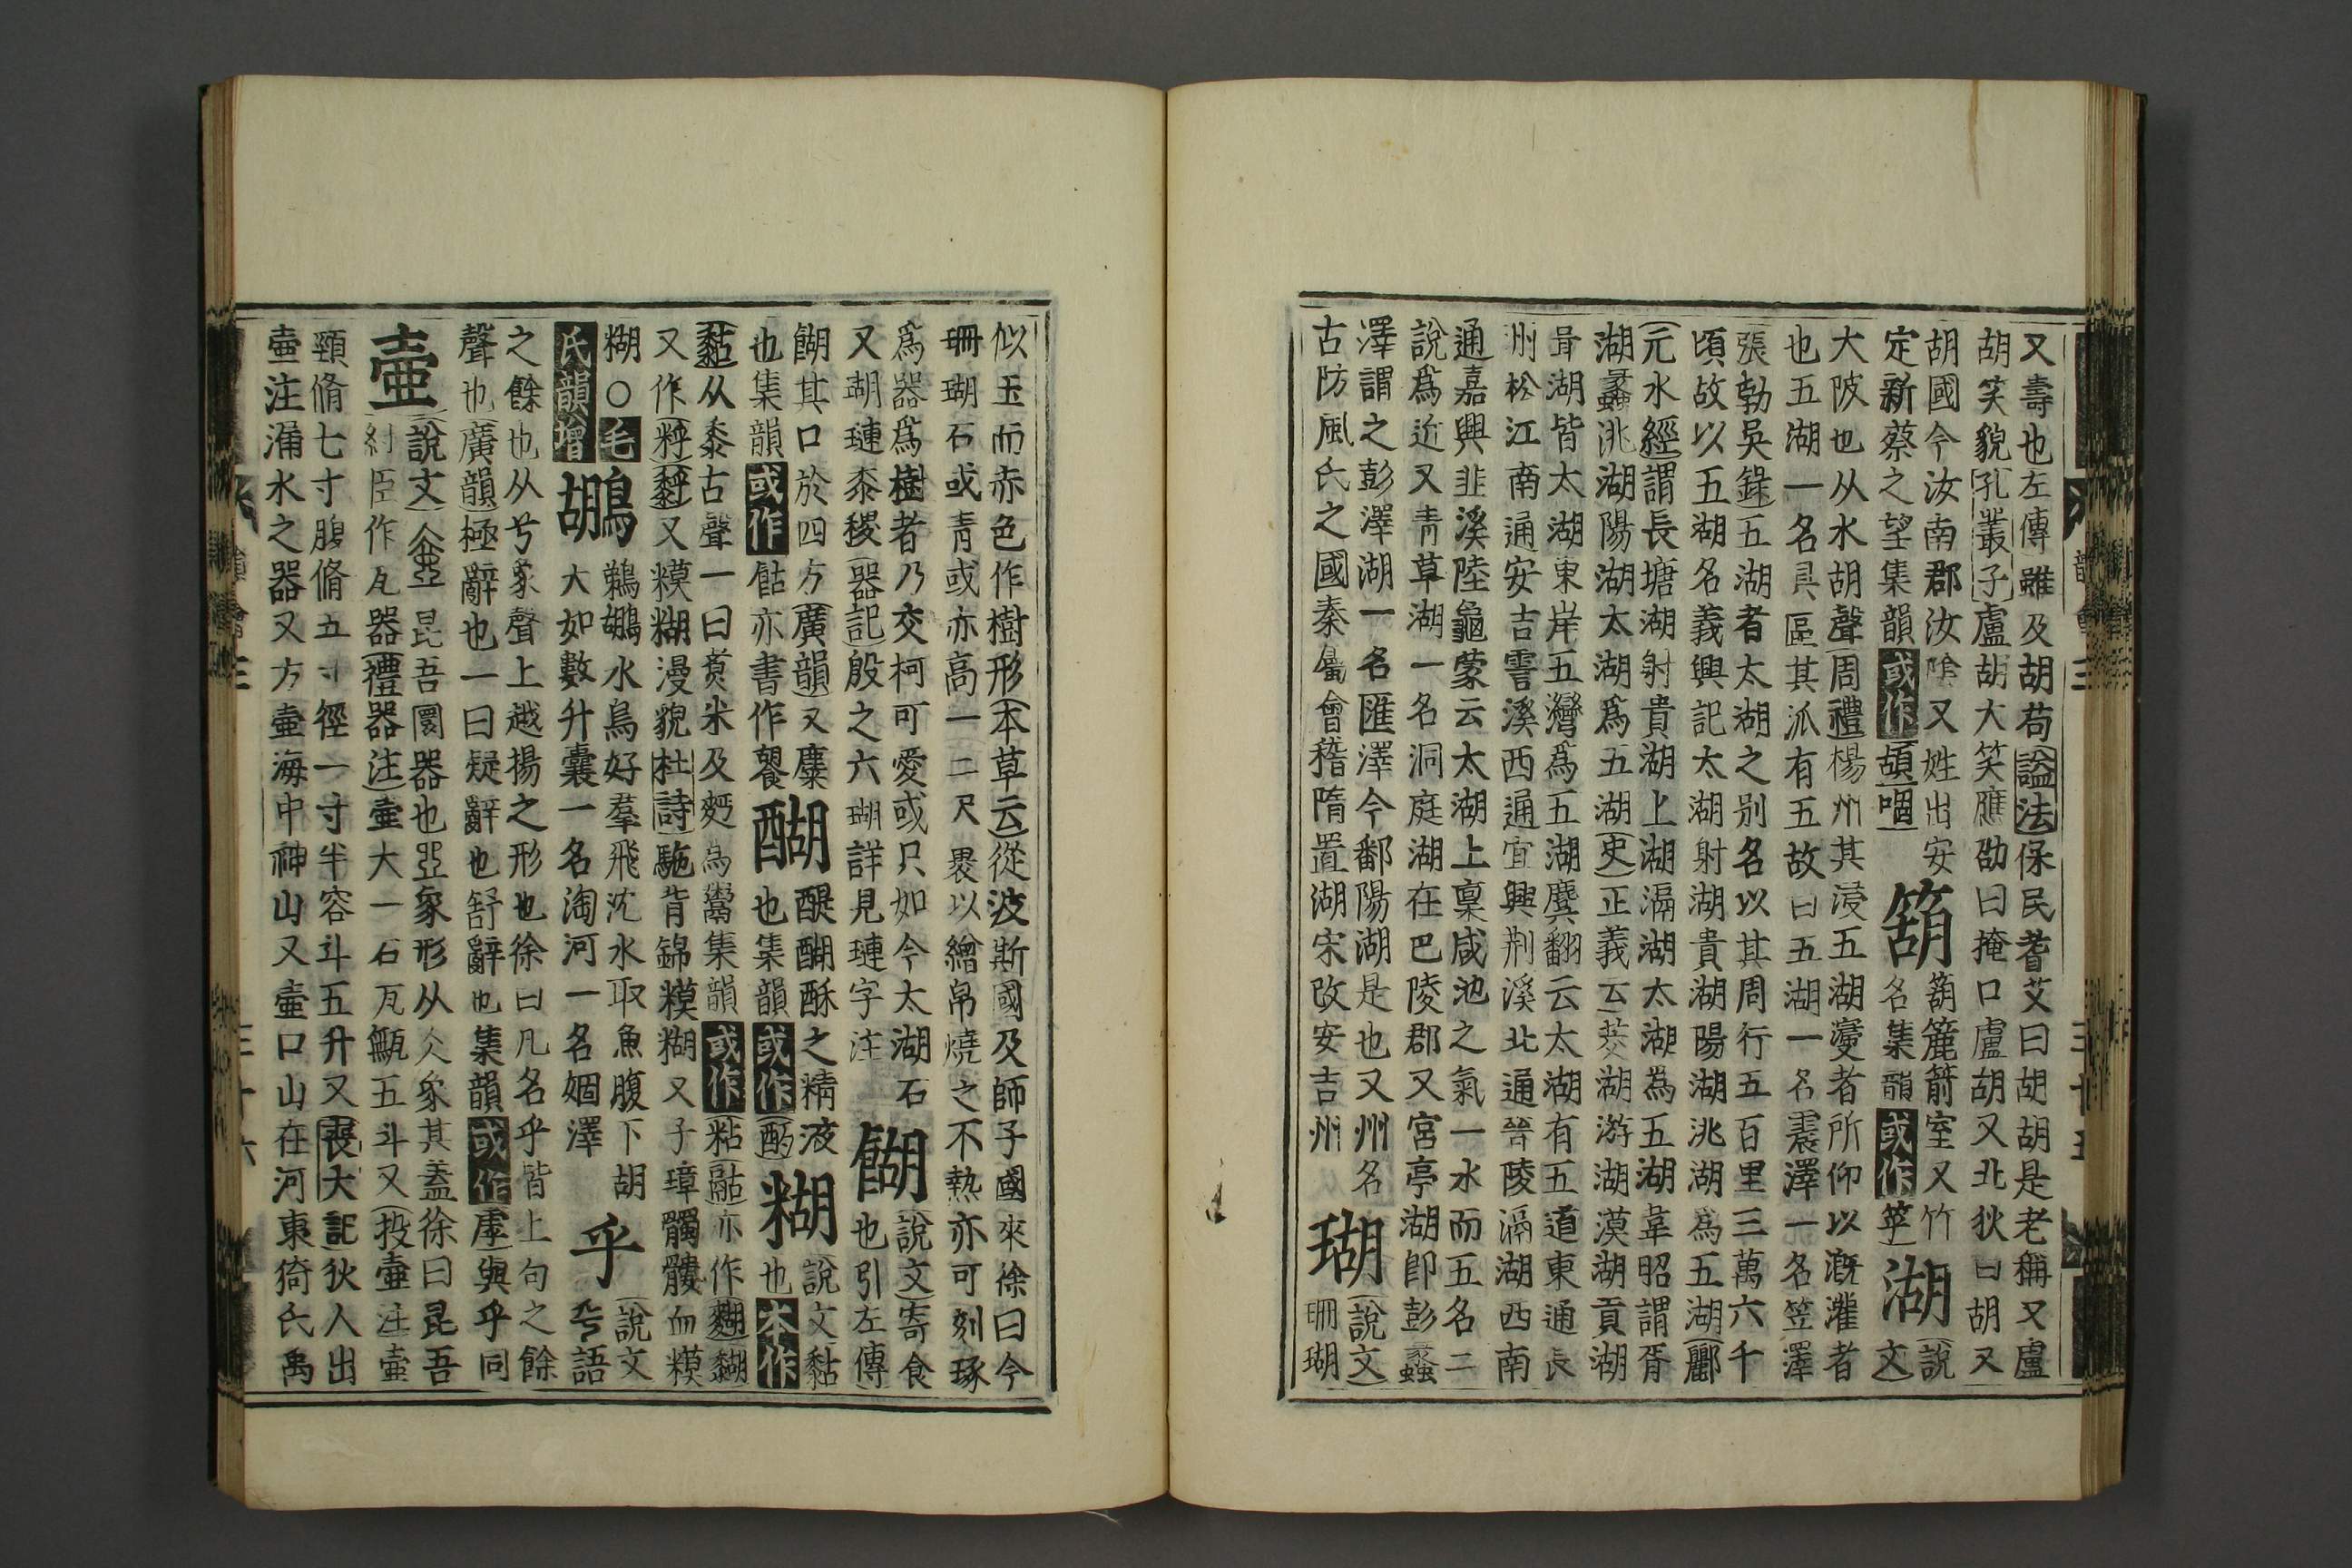 又壽也左傳雖及胡苟謚法保民耆艾曰胡胡是老稱又盧
胡笑貌孔叢子盧胡大笑應劭曰掩口盧胡又北狄曰胡又
胡國今汝南郡汝陰又姓出安
定新蔡之望集韻或作頡㗅
箶
箶簏箭室又竹
名集韻或作䇢
湖
說
文
大陂也从水胡聲周禮楊州其浸五湖寖者所仰以漑灌者
也五湖一名具區其派有五故曰五湖一名震澤一名笠澤
張勃吳錄五湖者太湖之别名以其周行五百里三萬六千
頃故以五湖名義興記太湖射湖貴湖陽湖洮湖為五湖酈
元水經謂長塘湖射貴湖上湖滆湖太湖為五湖韋昭謂胥
湖蠡洮湖陽湖太湖爲五湖史正義云茭湖游湖漠湖貢湖
胥湖皆太湖東岸五灣爲五湖虞翻云太湖有五道東通長
洲松江南通安吉霅溪西通宜興荆溪北通晉陵滆湖西南
通嘉興韭溪陸龜蒙云太湖上稟咸池之氣一水而五名二
說爲近又青草湖一名洞庭湖在巴陵郡又宮亭湖卽彭蠡
澤謂之彭澤湖一名匯澤今鄱陽湖是也又州名
古防風氏之國秦屬會稽隋置湖宋改安吉州
瑚
說文
珊瑚
似玉而赤色作樹形本草云從波斯國及師子國來徐曰今
珊瑚石或青或赤高一二尺褁以繒帛燒之不熱亦可刻琢
爲器爲樹者乃交柯可愛或只如今太湖石
又瑚璉黍稷器記殷之六瑚詳見璉字注
餬
說文寄食
也引左傳
餬其口於四方廣韻又麋
也集韻或作䬠亦書作䭌
醐
醍醐酥之精液
也集韻或作酭
糊
說文黏
也本作
黏从黍古聲一曰煑米及麪為鬻集韻或作粘䵒亦作麴黏
又作䊀䵘又糢糊漫貌杜詩駞背錦糢糊又子璋髑髏血糢
糊○毛
氏韻增
鶘
鵜鶘水鳥好羣飛沈水取魚腹下胡
大如數升囊一名淘河一名㛿澤
乎
說文
兮語
之餘也从兮象聲上越揚之形也徐曰凡名乎皆上句之餘
聲也廣韻極辭也一曰疑辭也舒辭也集韻或作虖與乎同
壷
說文昆吾圜器也亞象形从亼象其蓋徐曰昆吾
紂臣作瓦器禮器注壷大一石瓦甒五斗又投壷注壷
頸脩七寸腹脩五寸徑一寸半容斗五升又喪大記狄人出
壷注漏水之器又方壷海中神山又壷口山在河東猗氏禹